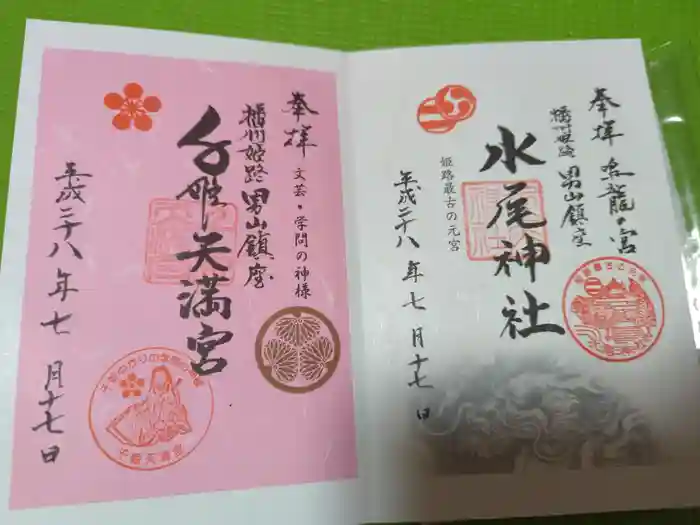 奉拝 水龍の宮
播州姫路 男山鎮座
水尾神社
姫路最古の元宮
平成二十八年七月十七日
奉拝
文芸・学問の神様
播州姫路 男山鎮座
千姫天満宮
平成二十八年七月十七日
千姫天満宮